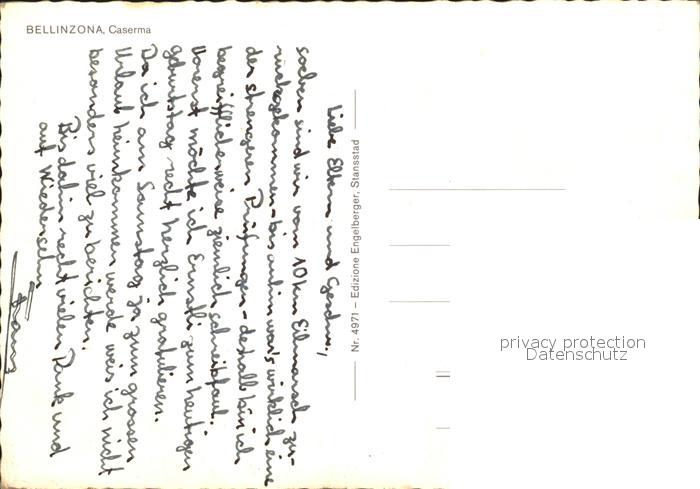 BELLINZONA, Caserma
Liebe Eltern und Geschw.,
soeben sind wir vom 10 km Eilmarsch zu-
rückgekommen - bis anhin war's wirklich eine
der strengeren Prüfungen - deshalb bin ich
begreifflicherweise ziemlich schreibfaul.
Vorerst möchte ich Ernstli zum heutigen
Geburtstag recht herzlich gratulieren.
Da ich am Samstag ja zum grossen
Urlaub heimkommen werde weis ich nicht
besonders viel zu berichten.
Bis dahin recht vielen Dank und
auf Wiedersehn
Franz
Nr. 4971 – Edizione Engelberger, Stansstad
privacy protection
Datenschutz